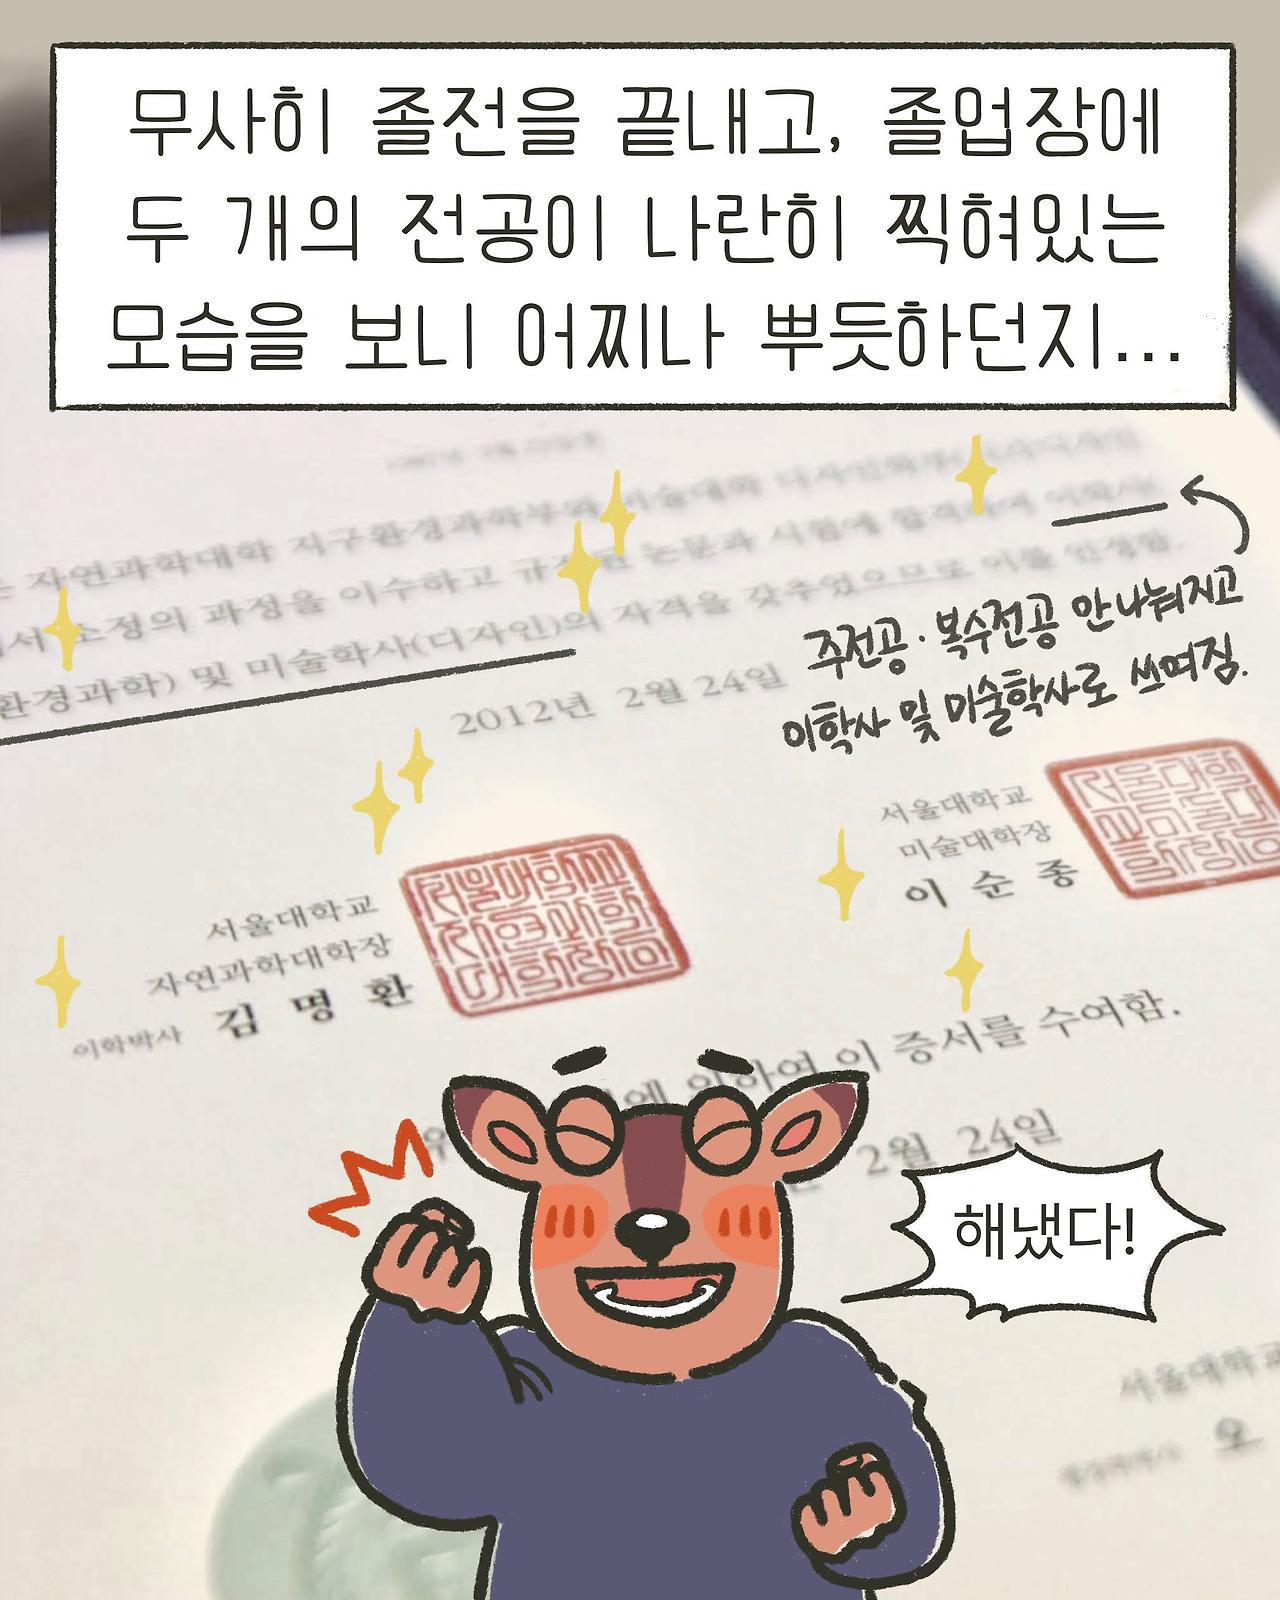 무사히 졸전을 끝내고, 졸업장에
두 개의 전공이 나란히 찍혀있는
모습을 보니 어찌나 뿌듯하던지...
자연과학대학 지구환경과학부와 미술대학 디자인학부
소정의 과정을 이수하고 규정된 논문과 시험에 합격하여 이학사
환경과학) 및 미술학사(디자인)의 자격을 갖추었으므로 이를 인정함.
2012년 2월 24일
주전공·복수전공 안 나눠지고
이학사 및 미술학사로 쓰여짐.
서울대학교
미술대학장
이 순 종
서울대학교
자연과학대학장
이학박사 김 명 환
의하여 이 증서를 수여함.
2월 24일
해냈다!
서울대학교
오